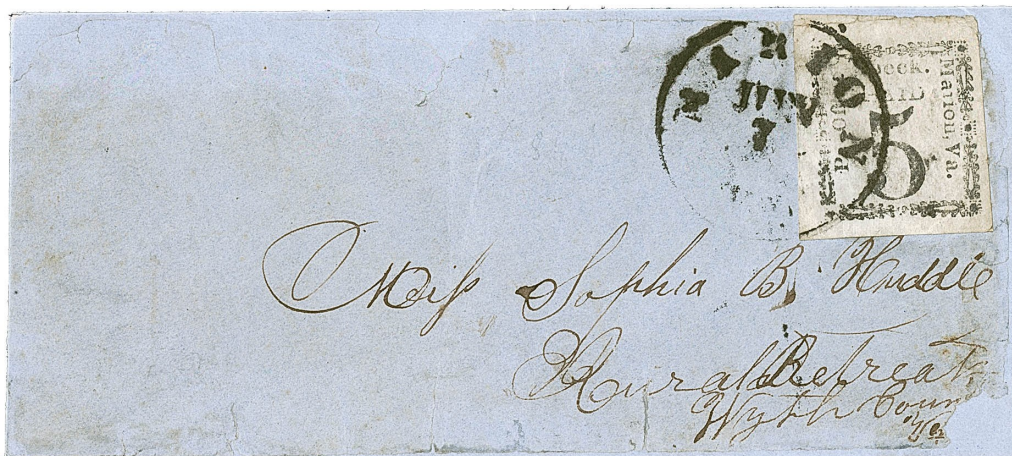 MARION VA
2
check.
PAID
5
Marion, Va.
P. O.
Miſs Sophia B. Huddle
Rural Retreat
Wyth Coun
Va